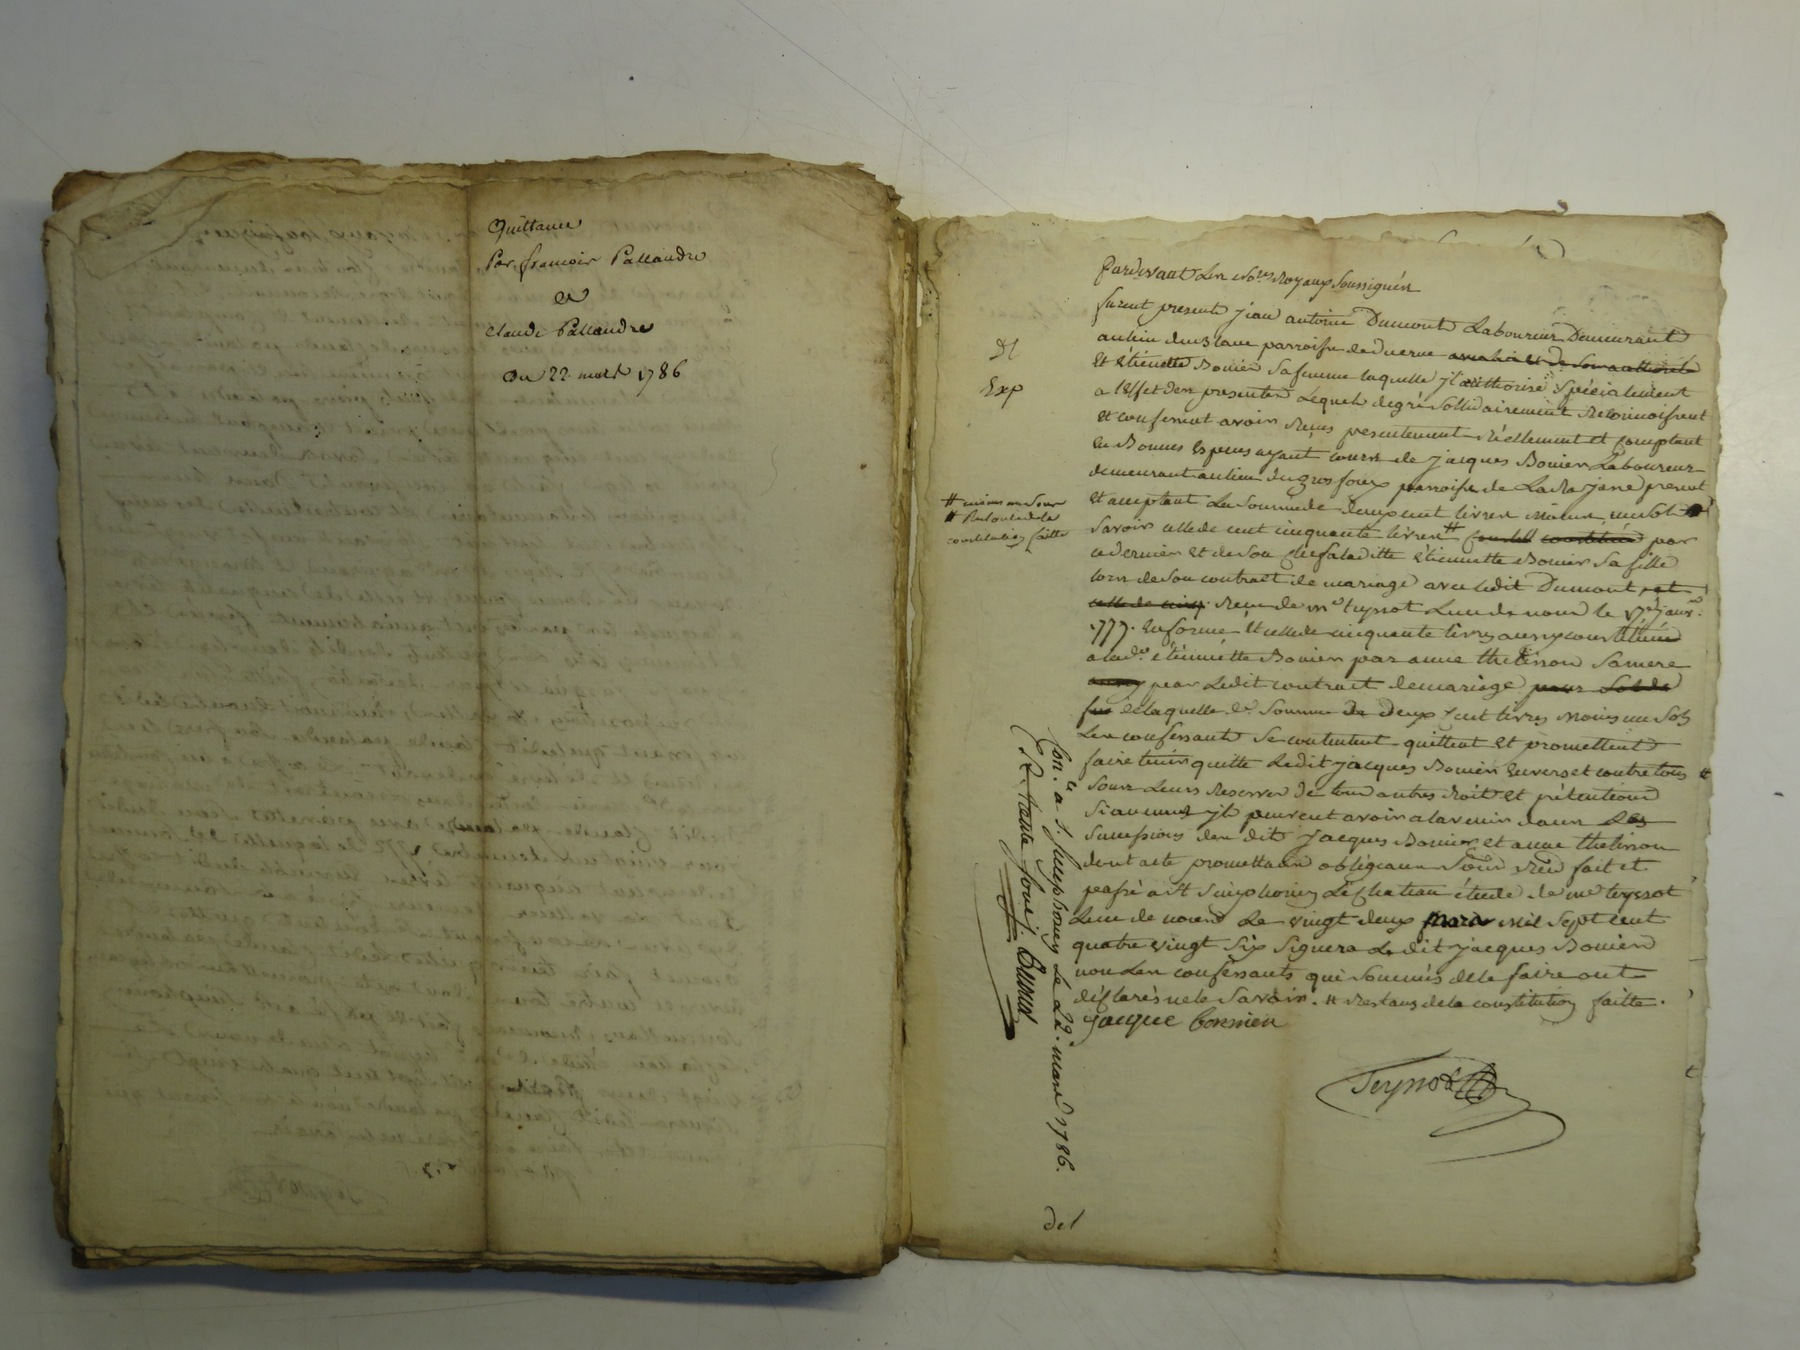 Quittance
Par francois Pallandre
a
Claude Pallandre
Du 22 mars 1786
Pardevant Les No.res Royaux soussignés
furent present jean antoine Dumont Laboureur Demeurant
au lieu parroisse
et etienette Bonier sa femme laquelle jl authorise spécialement
a leffet des presentes Lequels de gré sollidairement Reconnoissent
et confessent avoir Reçus presentement Réellement et comptant
en Bonnes Especes ayant cours de jacques Bonier Laboureur
demeurant au lieu du gros foux parroisse de La Rajasse present
et acceptant La somme de deux cent livres Moins un sol
savoir celle de cent cinquante livres # par
ce dernier et de son chef a laditte etiennette Bonier sa fille
lors de son contract de mariage avec ledit Dumont
Reçu de me teyssot L'un de nous le 17e janv.
1777. en forme et celle de cinquante livres aussy constituée
a lad.e étiennette Bonier par anne thelisson sa mere
par Ledit contract de mariage
de laquelle d.e somme De Deux cent livres Moins un sol
Les confessants se contentent quittent et promettent
faire tenir quitte Ledit jacques Bonier envers et contre tous #
sous Leurs Reserves de tous autres droits et prétentions
si aucuns jls peuvent avoir a lavenir dans Les
successions des dit jacques Bonier et anne thelisson
dont acte promettants obligeans sous Reu fait et
passé a st simphorien Le chateau étude de me teyssot
L'un de nous Le vingt deux Mars mil sept cent
quatre vingt six signera Ledit jacques Bonier
non Les confessants qui sommés de le faire ont
déclarés ne le savoir. # Restans de la constitution faitte.
jacque bonnier
Teyssot
Dl
Exp
# moins un sour
# Restante de la
constitution faitte
Con.le a s. simphorien Le 22. mars 1786.
R. trante sous s.
del